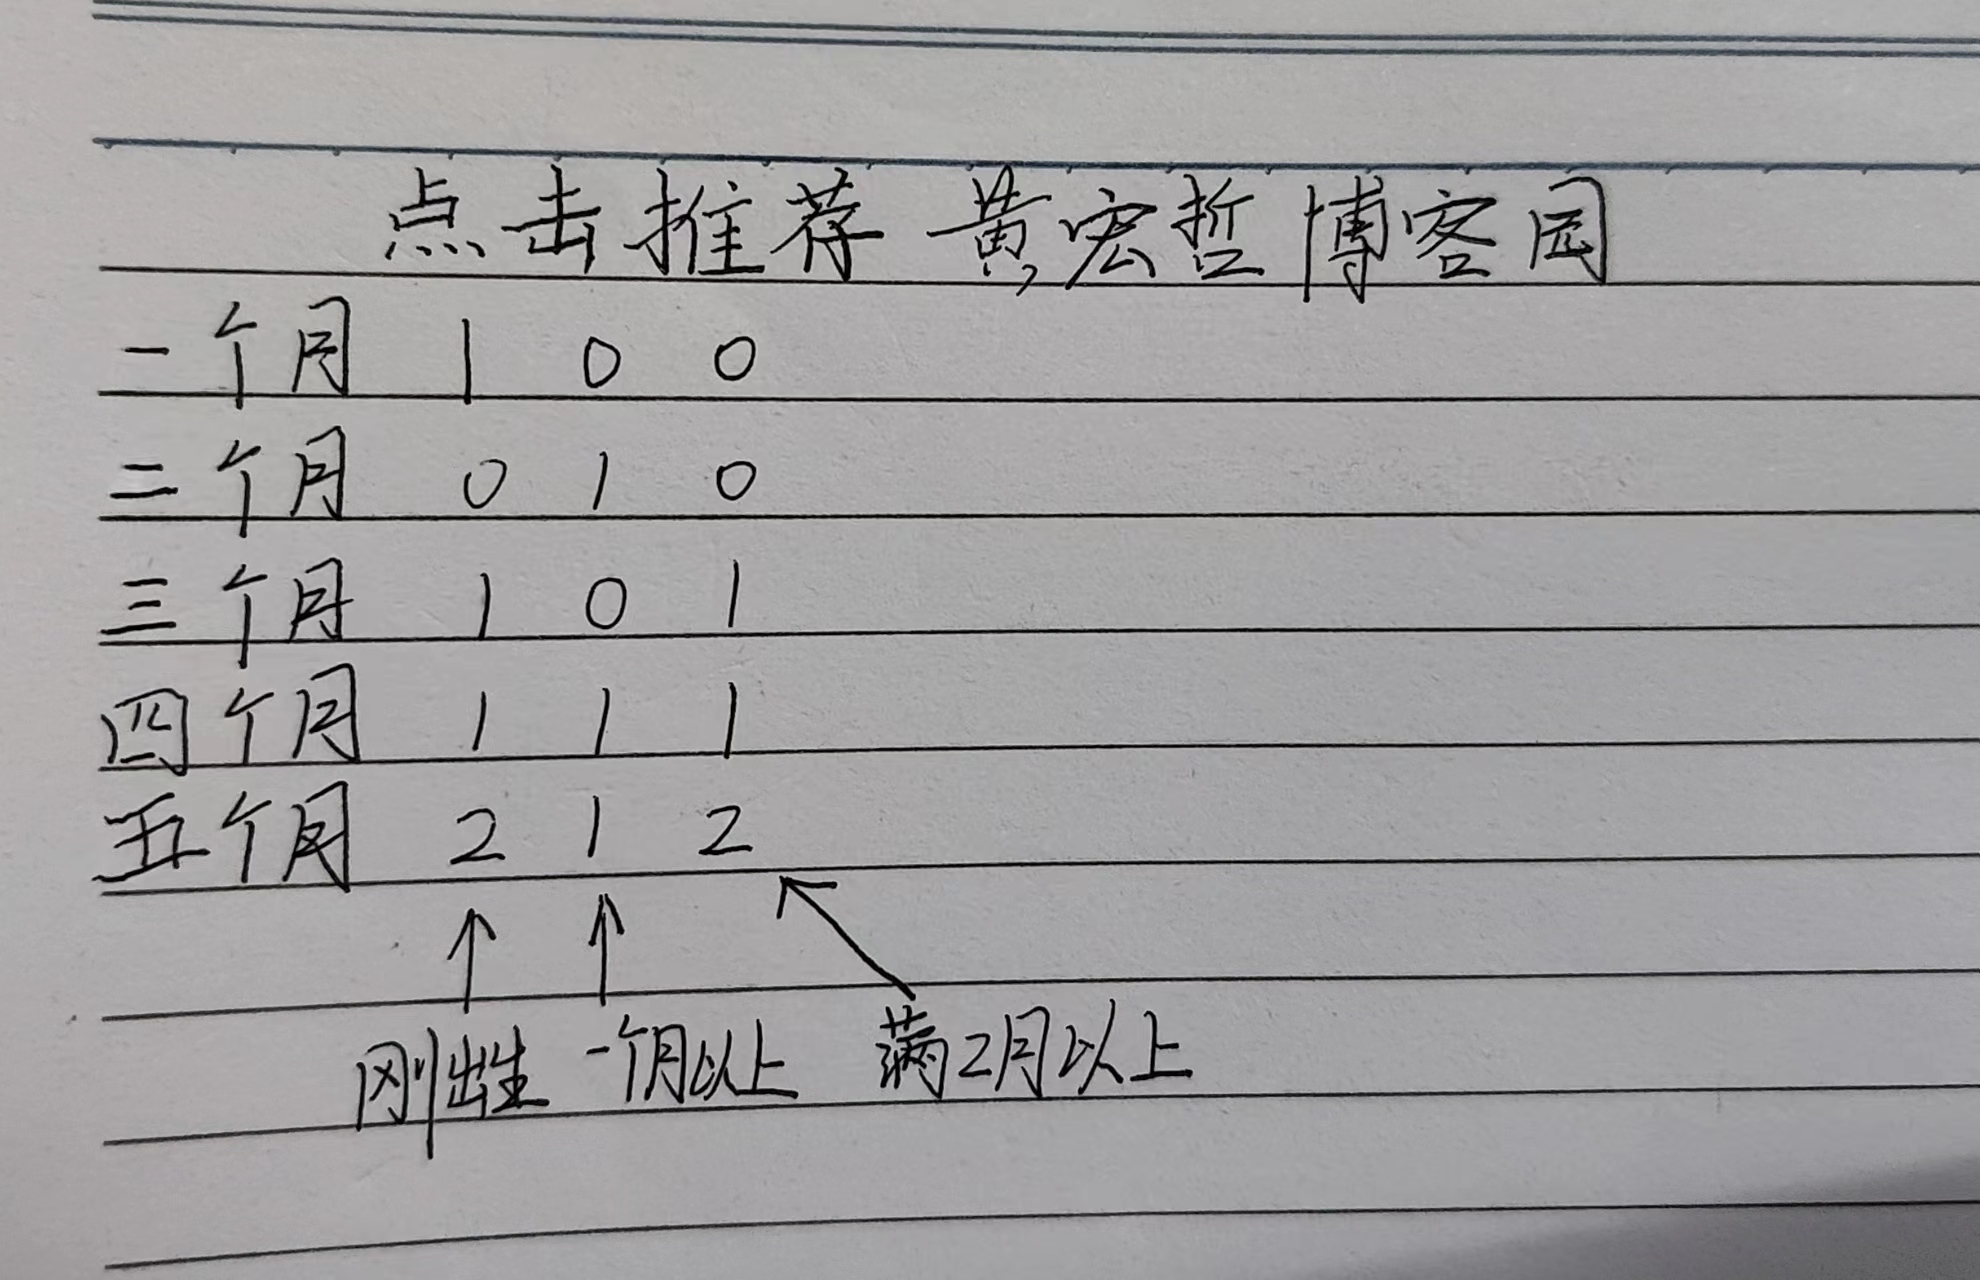 点击推荐 黄宏哲博客园
一个月 1 0 0
二个月 0 1 0
三个月 1 0 1
四个月 1 1 1
五个月 2 1 2
刚出生 一个月以上 满2月以上